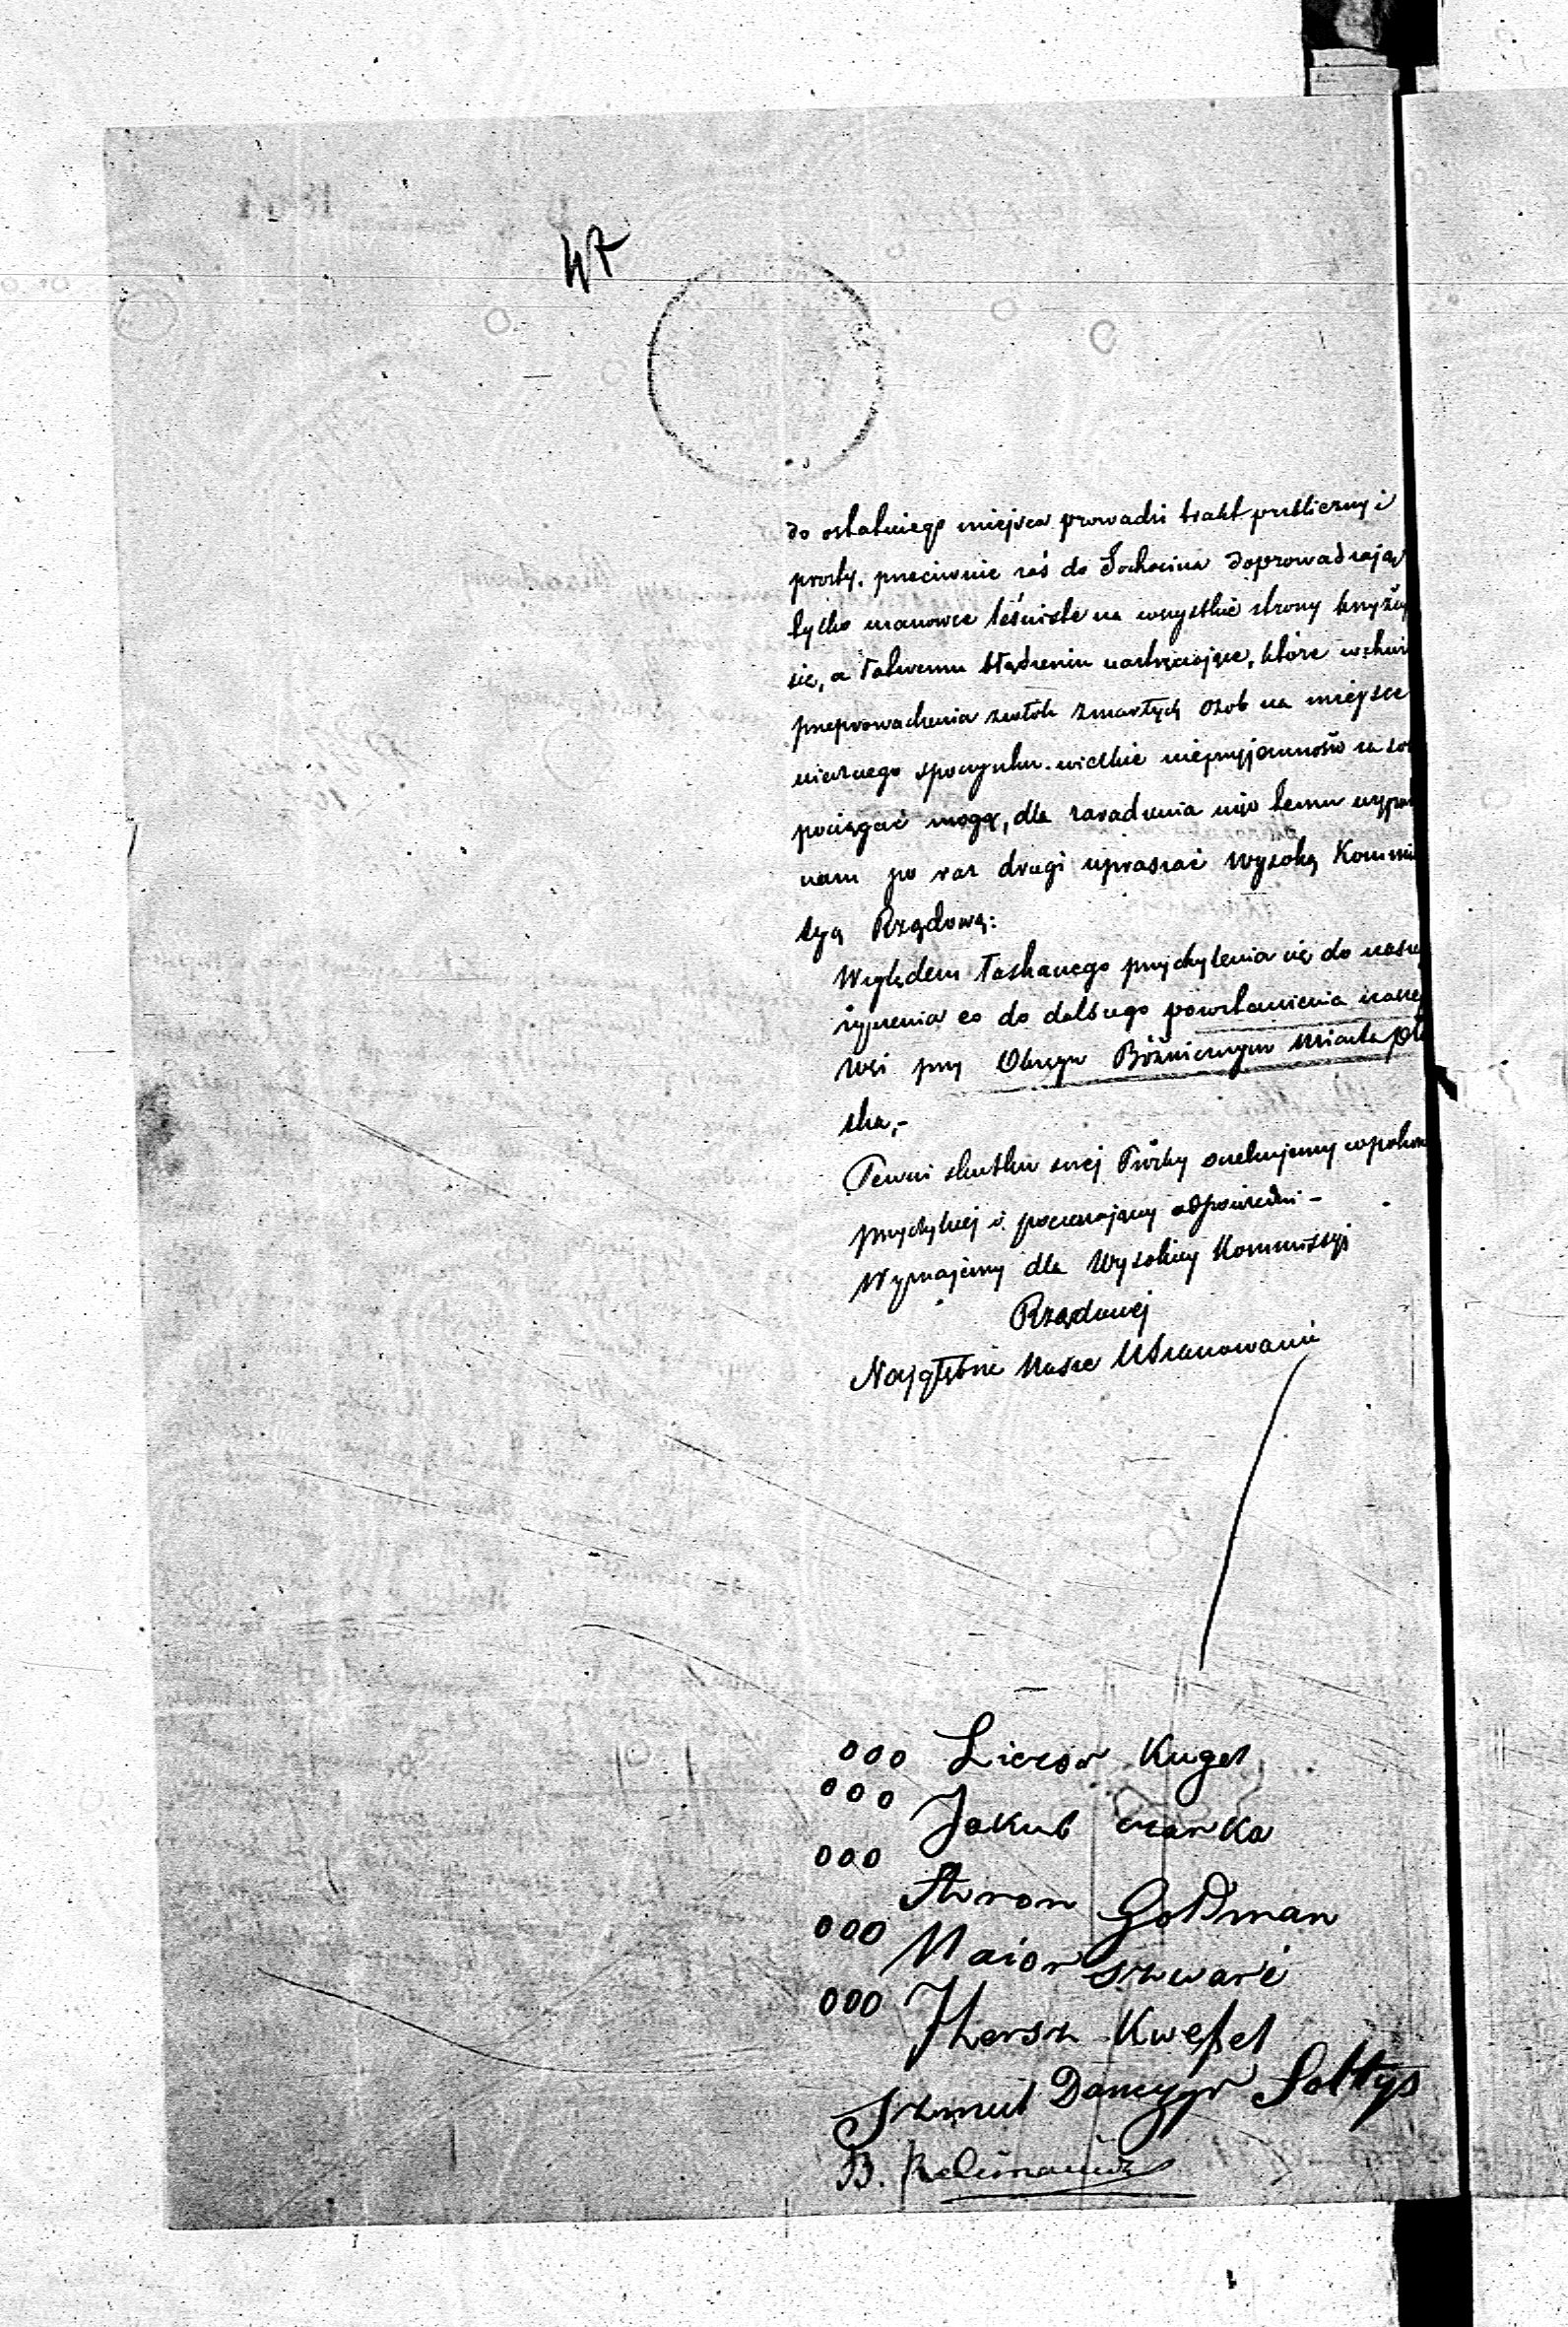 47
do ostatniego miejsca prowadzi trakt publiczny i
prosty. przeciwnie zaś do Sochocina doprowadzają
tylko manowce leśniste na wszystkie strony krzyżu
się, a łatwemu błądzeniu nastręczające, które w
przeprowadzenia zwłok zmarłych osob na miejsce
wiecznego spoczynku wielkie nieprzyjemności za
pociągać mogą, dla zaradzenia więc temu wypa
nam po raz drugi upraszać Wysoką Kommis
syą Rządową:
Względem łaskawego przychylenia się do nasze
życzenia co do dalszego pozostawienia nasze
wsi przy Okręgu Bóżniczym Miasta Pło
ska,-
Pewni skutku swej Prośby oczekujemy w
przychylnej i pocieszającej odpowiedzi -
Wyznajemy dla Wysokiey Kommissyi
Rządowej
Najgłębsze Nasze Uszanowanie
000 Liezor Kugel
000 Jakub Czarka
000 Aron Goldman
000 Maior Szwarc
000 Hersz Kwefel
Szmul Dancygr Sołtys
B.